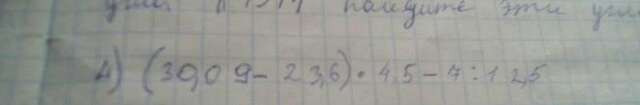 найдите эти
4) (30,09 - 23,6) · 4,5 - 7 : 12,5